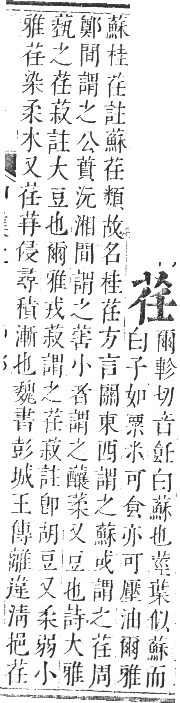 荏 爾軫切音飪白蘇也莖葉似蘇而
白子如粟米可食亦可壓油爾雅
蘇桂荏註蘇荏類故名桂荏方言關東西謂之蘇或謂之荏周
鄭間謂之公蕡沅湘間謂之䔱小者謂之釀菜又豆也詩大雅
蓺之荏菽註大豆也爾雅戎菽謂之荏菽註卽胡豆又柔弱小
雅荏染柔木又荏苒侵尋積漸也魏書彭城王傳離違淸挹荏